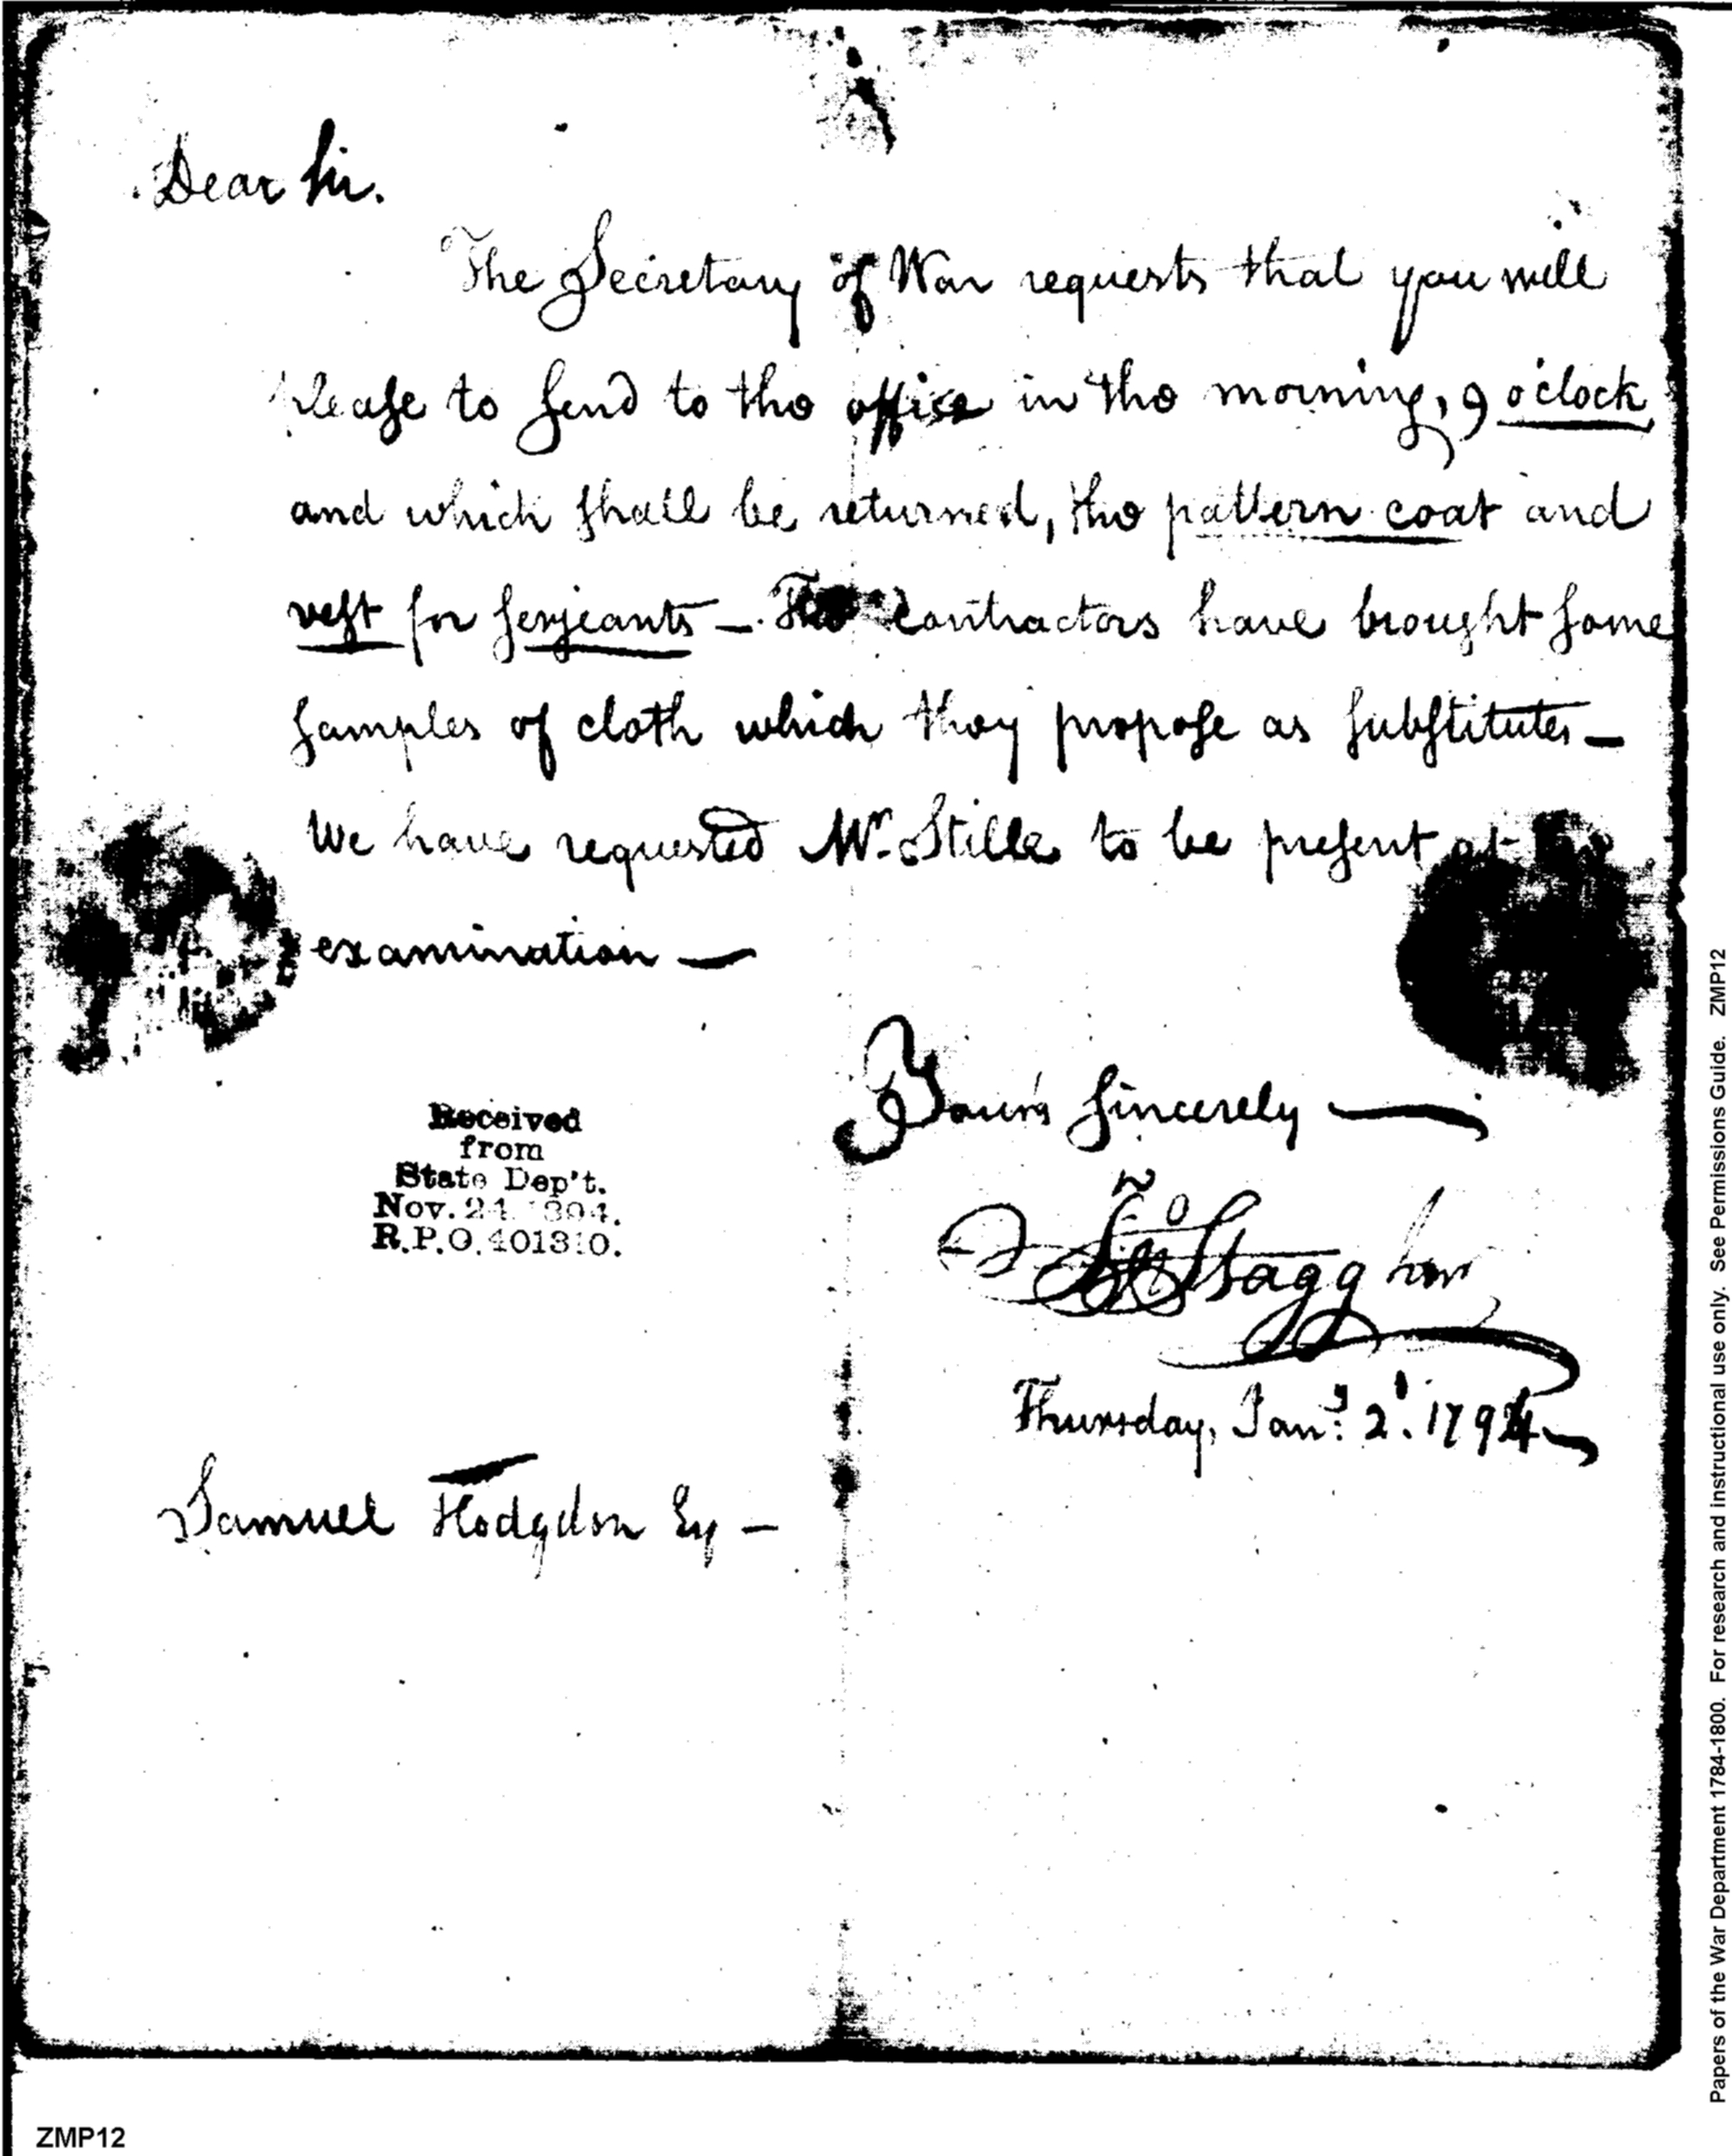 Dear Sir.
The Secretary of War requests that you will
please to send to the office in the morning, 9 o'clock
and which shall be returned, the pattern coat and
vest for serjeants — The Contractors have brought some
samples of cloth which they propose as substitutes —
We have requested Mr. Stille to be present at the
examination —
Yours sincerely —
Jno Stagg Junr
Thursday, Jany. 2d. 1794
Samuel Hodgdon Esq —
Received
from
State Dep't.
Nov. 24 1894.
R.P.O. 401310.
Papers of the War Department 1784-1800. For research and instructional use only. See Permissions Guide. ZMP12
ZMP12